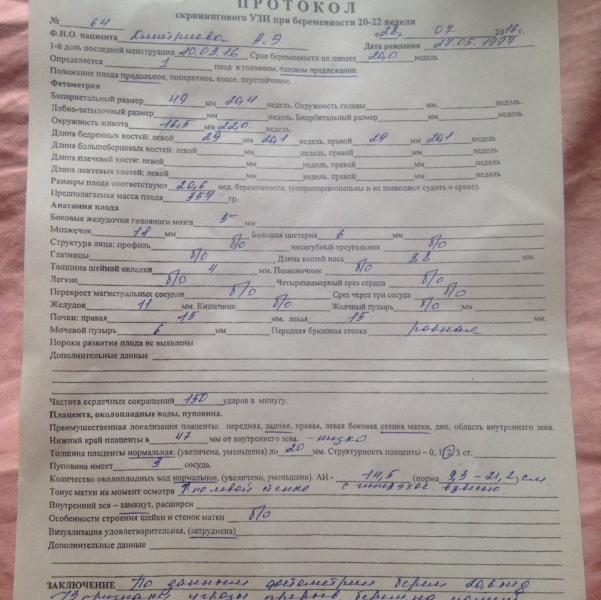 ПРОТОКОЛ
скринингового УЗИ при беременности 20-22 недели
№ 64 «28» 07 2016г.
Ф.И.О. пациента Дмитриева А.Э Дата рождения
1-й день последней менструации 10.03.16 Срок беременности по menses 20,0 недель
Определяется 1 плод в головном, тазовом предлежании.
Положение плода продольное, поперечное, косое, неустойчивое.
Фетометрия
Бипариетальный размер 49 мм 20,4 недель. Окружность головы мм. недель
Лобно-затылочный размер мм недель. Биорбитальный размер мм недель.
Окружность живота 16,5 мм 22,0 недель.
Длина бедренных костей: левой 29 мм 20,1 недель, правой 29 мм 20,1 недель
Длина большеберцовых костей: левой мм недель, правой мм недель
Длина плечевой кости: левой мм недель, правой мм недель
Длина локтевых костей: левой мм недель, правой мм недель
Размеры плода соответствуют 20,6 нед. беременности, (непропорциональны и не позволяют судить о сроке).
Предполагаемая масса плода 354 гр.
Анатомия плода
Боковые желудочки головного мозга 5 мм
Мозжечок 18 мм Большая цистерна 6 мм
Структура лица: профиль б/о носогубный треугольник б/о
Глазницы б/о Длина костей носа 3,8 мм.
Толщина шейной складки 4 мм. Позвоночник б/о
Легкие б/о Четырехкамерный срез сердца б/о
Перекрест магистральных сосудов б/о Срез через три сосуда б/о
Желудок 11 мм. Кишечник б/о Желчный пузырь б/о мм
Почки: правая 15 мм, левая 15 мм.
Мочевой пузырь 6 мм Передняя брюшная стенка ровная
Пороки развития плода не выявлены
Дополнительные данные
Частота сердечных сокращений 150 ударов в минуту.
Плацента, околоплодные воды, пуповина.
Преимущественная локализация плаценты: передняя, задняя, правая, левая боковая стенка матки, дно, область внутреннего зева.
Нижний край плаценты в 47 мм от внутреннего зева. - низко
Толщина плаценты нормальная, (увеличена, уменьшена) до 20 мм. Структурность плаценты – 0, 1, 2, 3 ст.
Пуповина имеет 3 сосуда.
Количество околоплодных вод нормальное, (увеличено, уменьшено). АИ - 14,5 (норма 9,3 - 21,2) см
Тонус матки на момент осмотра по левой стенке с гиперэхог. взвесью
Внутренний зев – замкнут, расширен
Особенности строения шейки и стенок матки б/о
Визуализация удовлетворительная, (затруднена)
Дополнительные данные
ЗАКЛЮЧЕНИЕ По данным фетометрии берем 20,6 нед